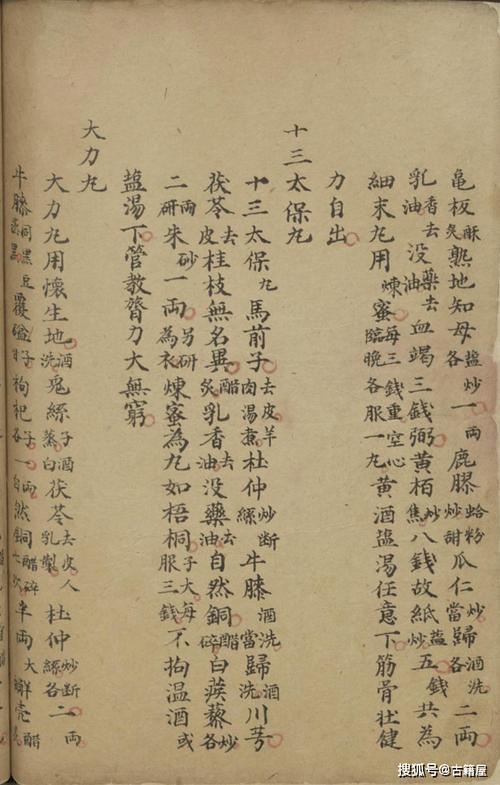 亀板酥炙熟地知母塩炒各一両鹿膠蛤粉炒甜瓜仁炒當歸酒洗各二両
乳香去油没藥去油血竭三錢弼黄栢炒焦八錢故紙塩炒五錢共為
細末丸用煉蜜每三錢重空心臨晚各服一丸黄酒塩湯任意下筋骨壮健
力自出
十三太保丸
十三太保丸馬前子去皮羊肉湯煮杜仲炒断絲牛膝酒洗當歸酒洗川芎
茯苓去皮桂枝無名異醋炙乳香去油没藥去油自然銅醋碎白蒺藜炒各
二両研朱砂一両另研為衣煉蜜為丸如梧桐子大每服三錢不拘温酒或
塩湯下管教膂力大無窮
大力丸
大力丸用懷生地酒洗兔絲子酒蒸白茯苓去皮人乳製杜仲炒断絲各二両
牛膝同黑豆蒸黑覆盆子枸杞子各一両自然銅醋碎七次半両大壳醋
搜狐号@古籍屋